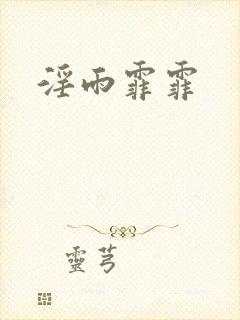 淫雨霏霏
靈芎